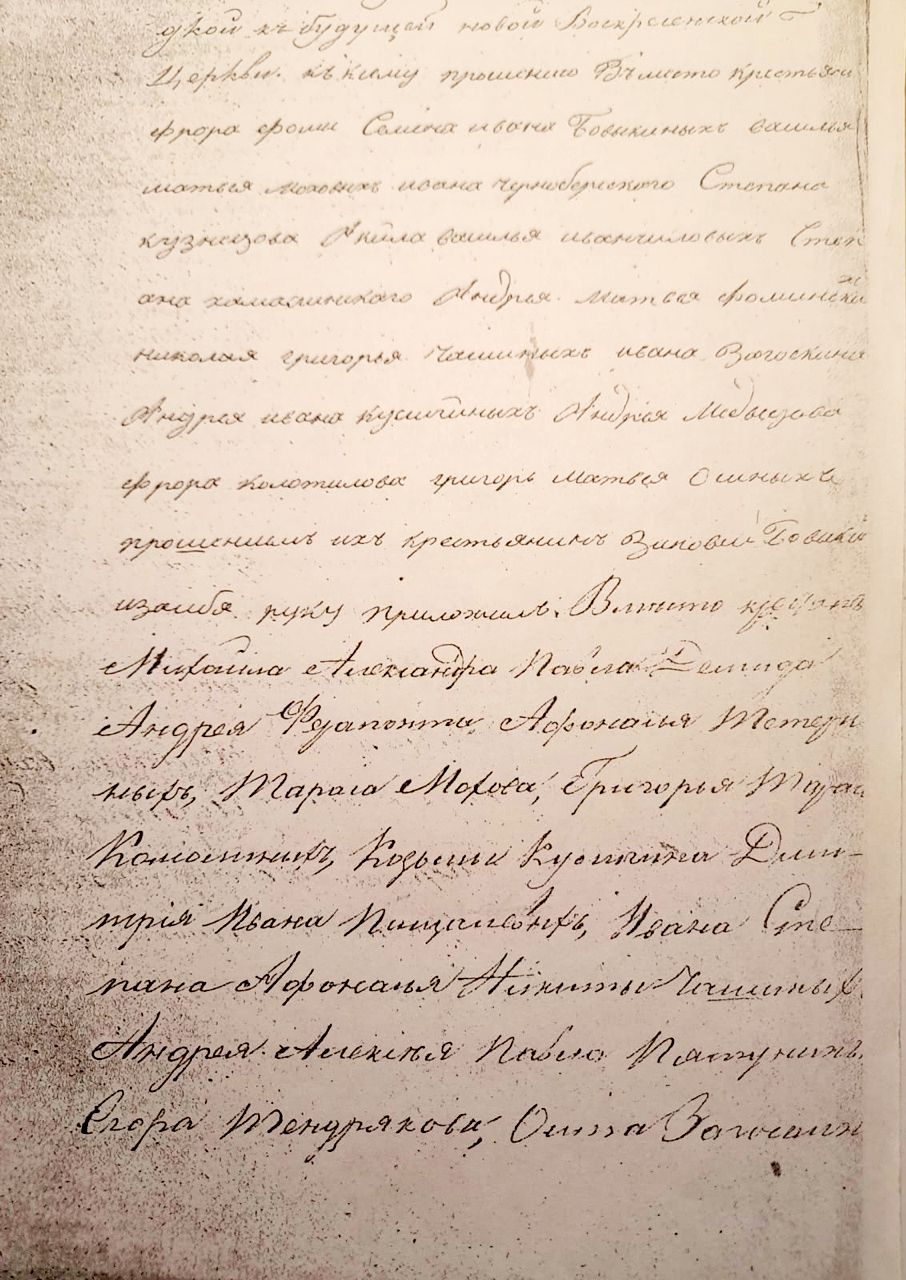 дкой къ будущей новой Воскресенской
Церкви. къ сему прошению Вместо крестьян
фрора фомы Семена ивана Бовыкиныхъ василья
матвея моховыхъ ивана чернобереского Степана
кузнецова Акила василья иванчиловыхъ Степ
ана Андрея матвея фоминска
николая григорья Чашиныхъ ивана Загоскина
Андрея ивана кусыиныхъ Андрея
фрора колотилова григорь матвея Ошиныхъ
прошениемъ ихъ крестьянинъ Зиновеи Бовыки
изаибя руку приложилъ. Вместо
Михаила Александра Павла Демида
Андрея Ферапонта, Афонасья Тетери
ныхъ, Тараса Мохова, Григорья
Козьмы Кусыкина Дми-
трія Ивана Ивана Сте-
пана Афонасья Никиты Чашиныхъ
Андрея Алексея Павла Пятунинъ.
Егора Тендрякова, Осипа Загоскин